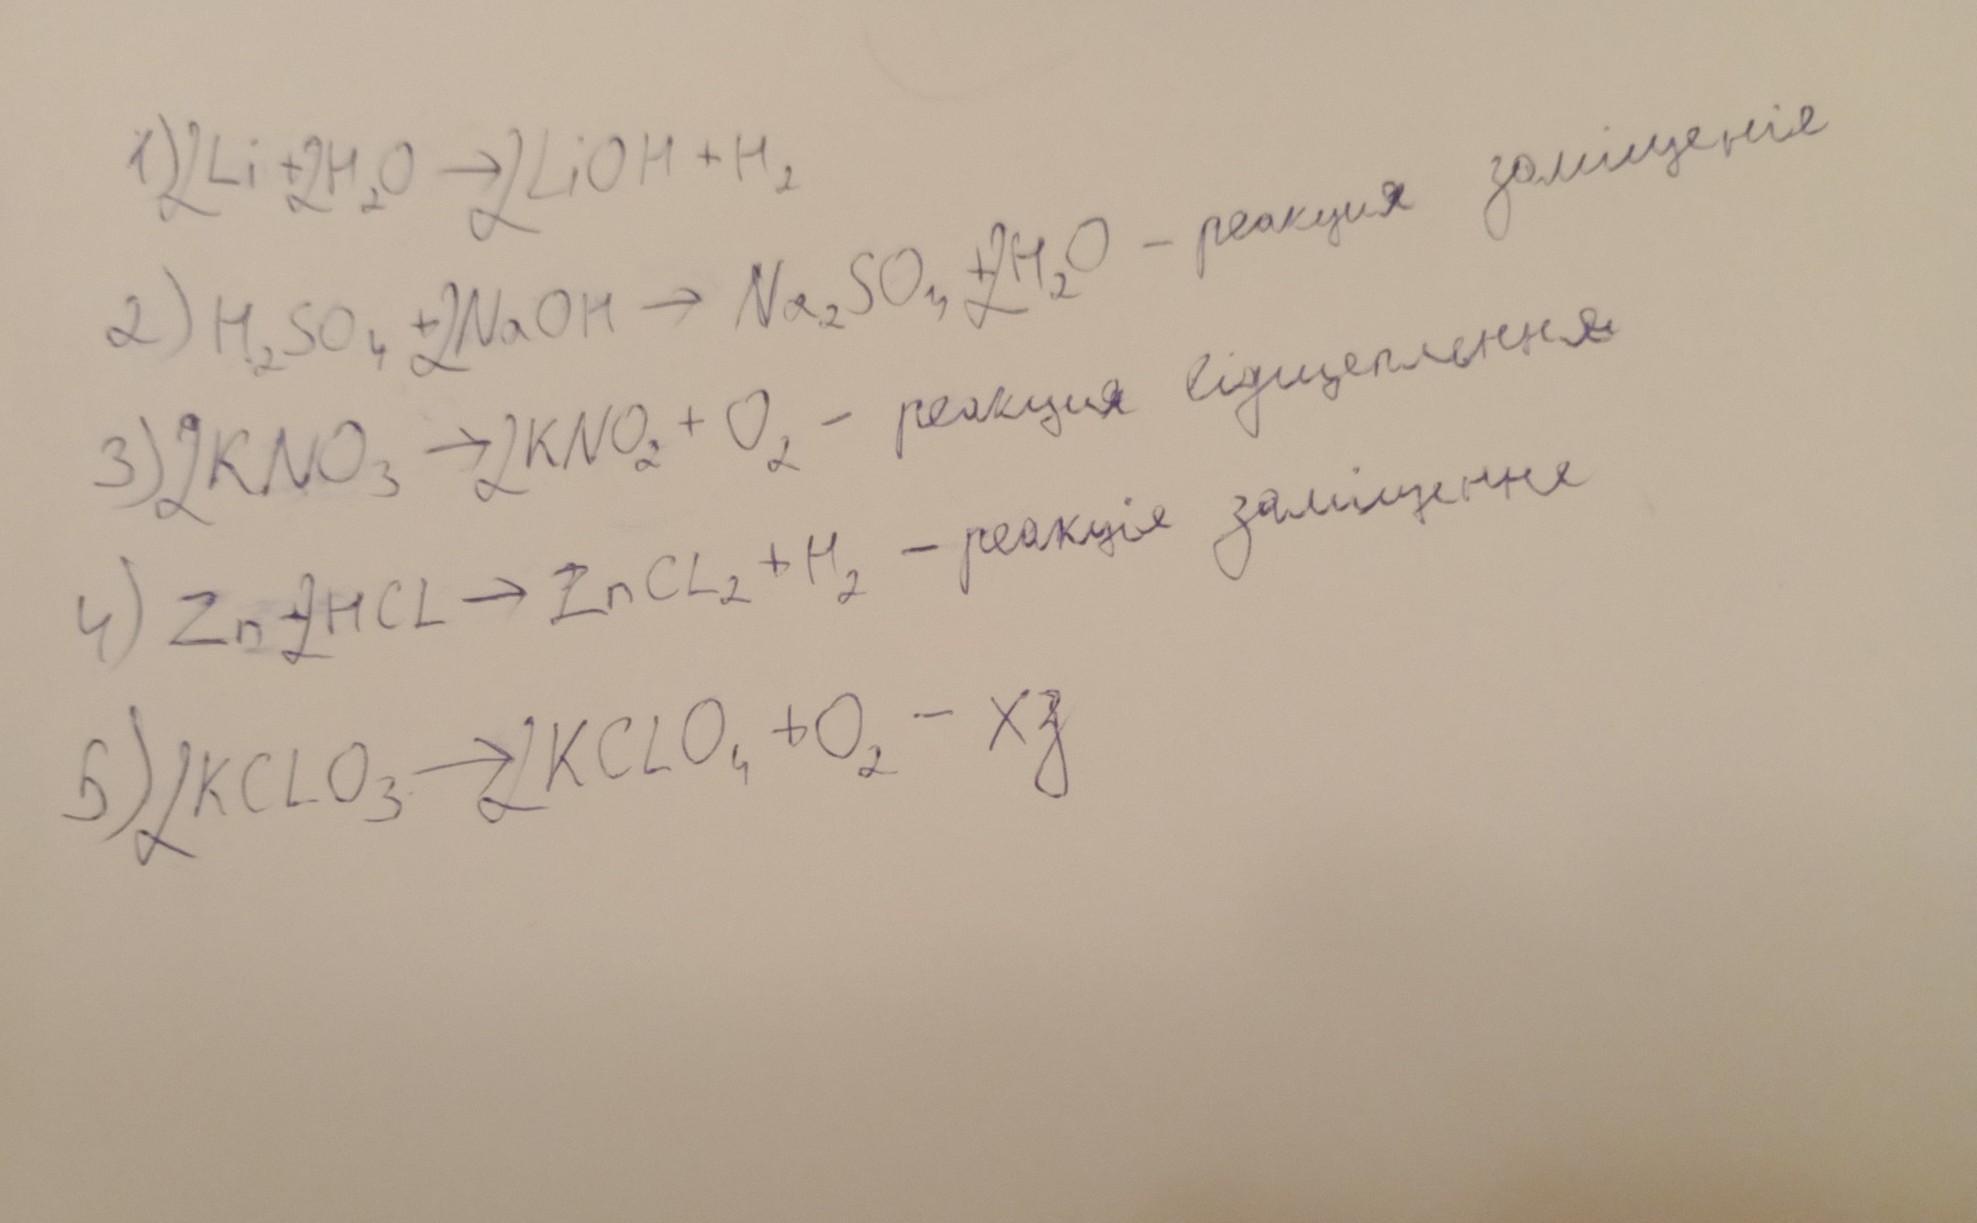 1) 2Li + 2H₂O → 2LiOH + H₂
2) H₂SO₄ + 2NaOH → Na₂SO₄ + 2H₂O – реакция заміщеніе
3) 2KNO₃ → 2KNO₂ + O₂ – реакция відщеплення
4) Zn + 2HCL → ZnCL₂ + H₂ – реакціе заміщенне
5) 2KCLO₃ → 2KCLO₄ + O₂ – хз